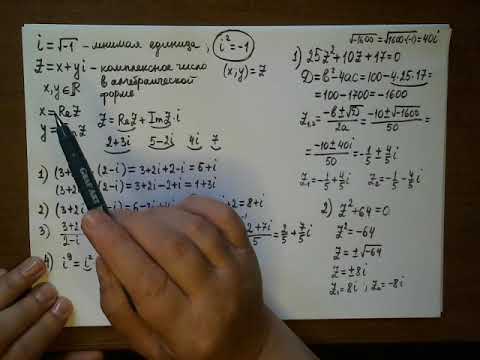 i = √-1 - мнимая единица, i² = -1
Z = x + yi - комплексное число
x, y ∈ ℝ в алгебраической
форме
(x, y) = Z
x = Re Z Z = Re Z + Im Z · i
y = Z 2+3i 5-2i 4i 7
1) (3+2 (2-i) = 3+2i+2-i = 5+i
(3+2i (2-i) = 3+2i-2+i = 1+3i
2) (3+2
+2 = 8+i
3) 3+2 2+7i
2-i 5 = 2/5 + 7/5 i
4) i⁹ = i²
√-1600 = √1600·(-1) = 40i
1) 25Z² + 10Z + 17 = 0
D = b² - 4ac = 100 - 4·25·17 =
= 100 - 1700 = -1600
Z₁,₂ = (-b ± √D)/2a = (-10 ± √-1600)/50 =
= (-10 ± 40i)/50 = -1/5 ± 4/5 i
Z₁ = -1/5 + 4/5 i Z₂ = -1/5 - 4/5 i
2) Z² + 64 = 0
Z² = -64
Z = ±√-64
Z = ±8i
Z₁ = 8i, Z₂ = -8i